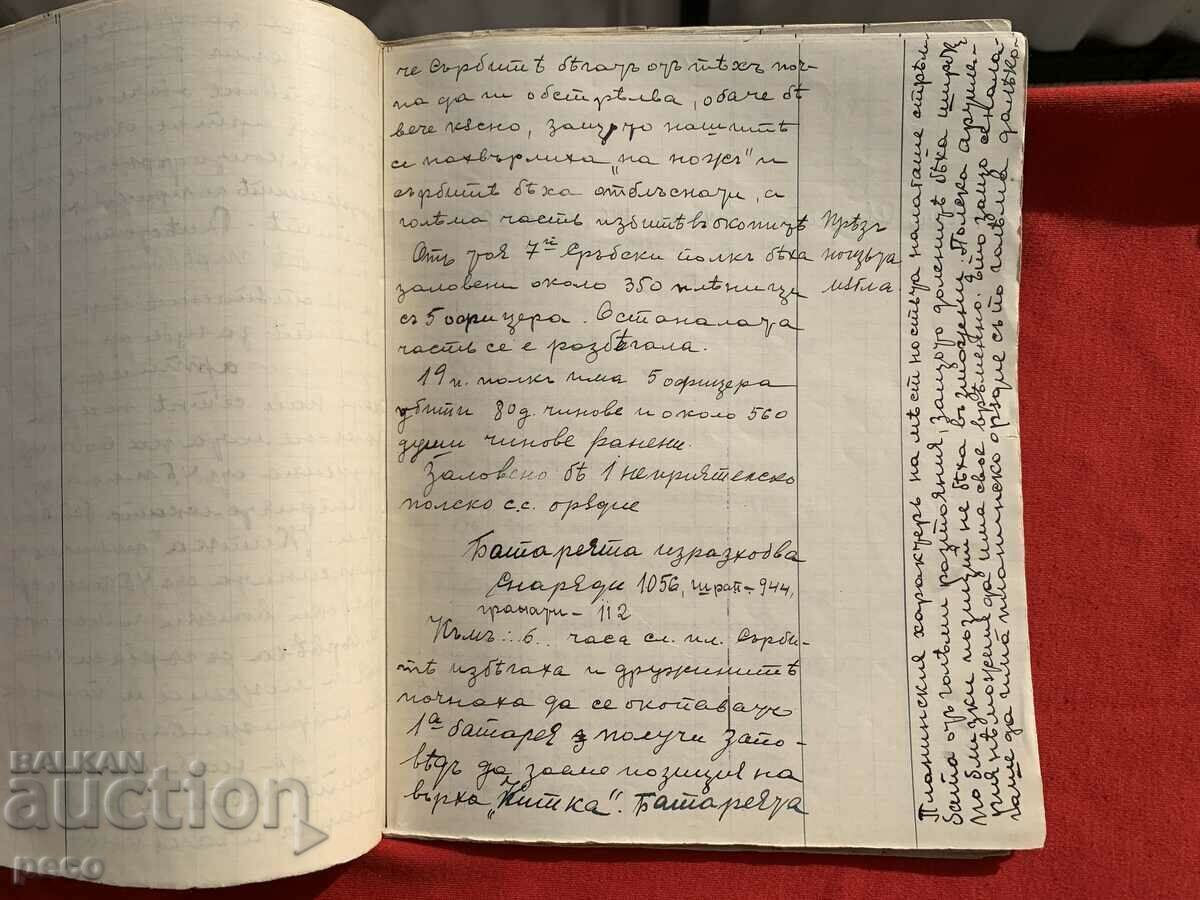 че Сърбитѣ бѣгатъ отъ тѣхъ поч-
на да ги обстрѣлва, обаче бѣ
вече късно, защото нашитѣ
се нахвърлиха „на ножъ" и
сърбитѣ бѣха отблъснати, а
голѣма часть избитѣ въ окопитѣ
Отъ тоя 7й Сръбски полкъ бѣха
заловени около 350 плѣници
съ 5 офицера. Останалата
часть се е разбѣгала.
19 п. полкъ има 5 офицера
убити 80 д. чинове и около 560
души чинове ранени.
Заловено бѣ 1 неприятелско
полско с.с. орѫдие
Батареята изразходва
Снаряди 1056, шрап - 944,
гранати - 112
Къмъ 6 часа сл. пл. Сърби-
тѣ избѣгаха и дружинитѣ
почнаха да се окопаватъ
1а батарея получи запо-
вѣдъ да заеме позиция на
върха „Китка". Батареята
Прѣзъ
нощьта
мъгла.
Планинския характеръ на мѣстностьта налагаше стрѣл-
бата отъ голѣми разтояния, защото долинитѣ бѣха широки
по близки позиции не бѣха възможни. Полека артиле-
рия нѣможеше да има свое врѣменно. Ето защо се нала-
гаше да има планинско орѫдие съ по голѣма далѣко-
BALKAN
auction
peco